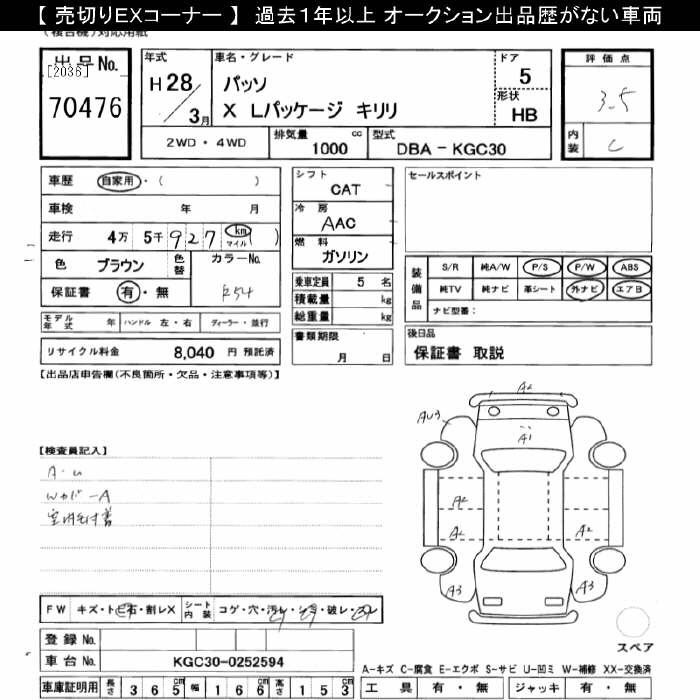 【 売切りEXコーナー 】 過去1年以上 オークション出品歴がない車両
(複合機)対応用紙
出品No.
[2036]
70476
年式
H 28
3月
車名・グレード
パッソ
X Lパッケージ キリリ
ドア
5
形状
HB
2WD・4WD
排気量
1000 cc
型式
DBA－KGC30
評価点
3.5
内装
C
車歴 自家用・( )
車検 年 月
走行 4万 5千 927 km マイル ( )
色 ブラウン
色替
カラーNo.
R54
保証書 有・無
モデル年式 年 ハンドル 左・右 ディーラー・並行
リサイクル料金 8,040 円 預託済
シフト
CAT
冷房
AAC
燃料
ガソリン
乗車定員 5 名
積載量 kg
総重量 kg
書類期限
月 日
セールスポイント
装備品
S/R 純A/W P/S P/W ABS
純TV 純ナビ 革シート 外ナビ エアB
ナビ型番:
後日品
保証書 取説
【出品店申告欄(不良箇所・欠品・注意事項等)】
【検査員記入】
A・U
Wカバ－A
A2
AU3
A1
A2
A2
A2
A3
A3
スペア
FW キズ・トビ石・割レX
シート内装
コゲ・穴・汚レ・シミ・破レ・スレ
登録No.
車台No. KGC30-0252594
車庫証明用 長さ 365cm 幅 166cm 高さ 153cm
A-キズ C-腐食 E-エクボ S-サビ U-凹ミ W-補修 XX-交換済
工具 有・無 ジャッキ 有・無